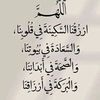 اللَّهُمَّ
ارْزُقْنَا السَّكِينَةَ فِي قُلُوبِنَا،
وَالسَّعَادَةَ فِي بُيُوتِنَا،
وَالصِّحَّةَ فِي أَبْدَانِنَا،
وَالْبَرَكَةَ فِي أَرْزَاقِنَا